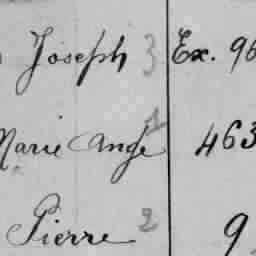 Joseph 3 Ex. 96
Marie Ange 463
Pierre 2 9